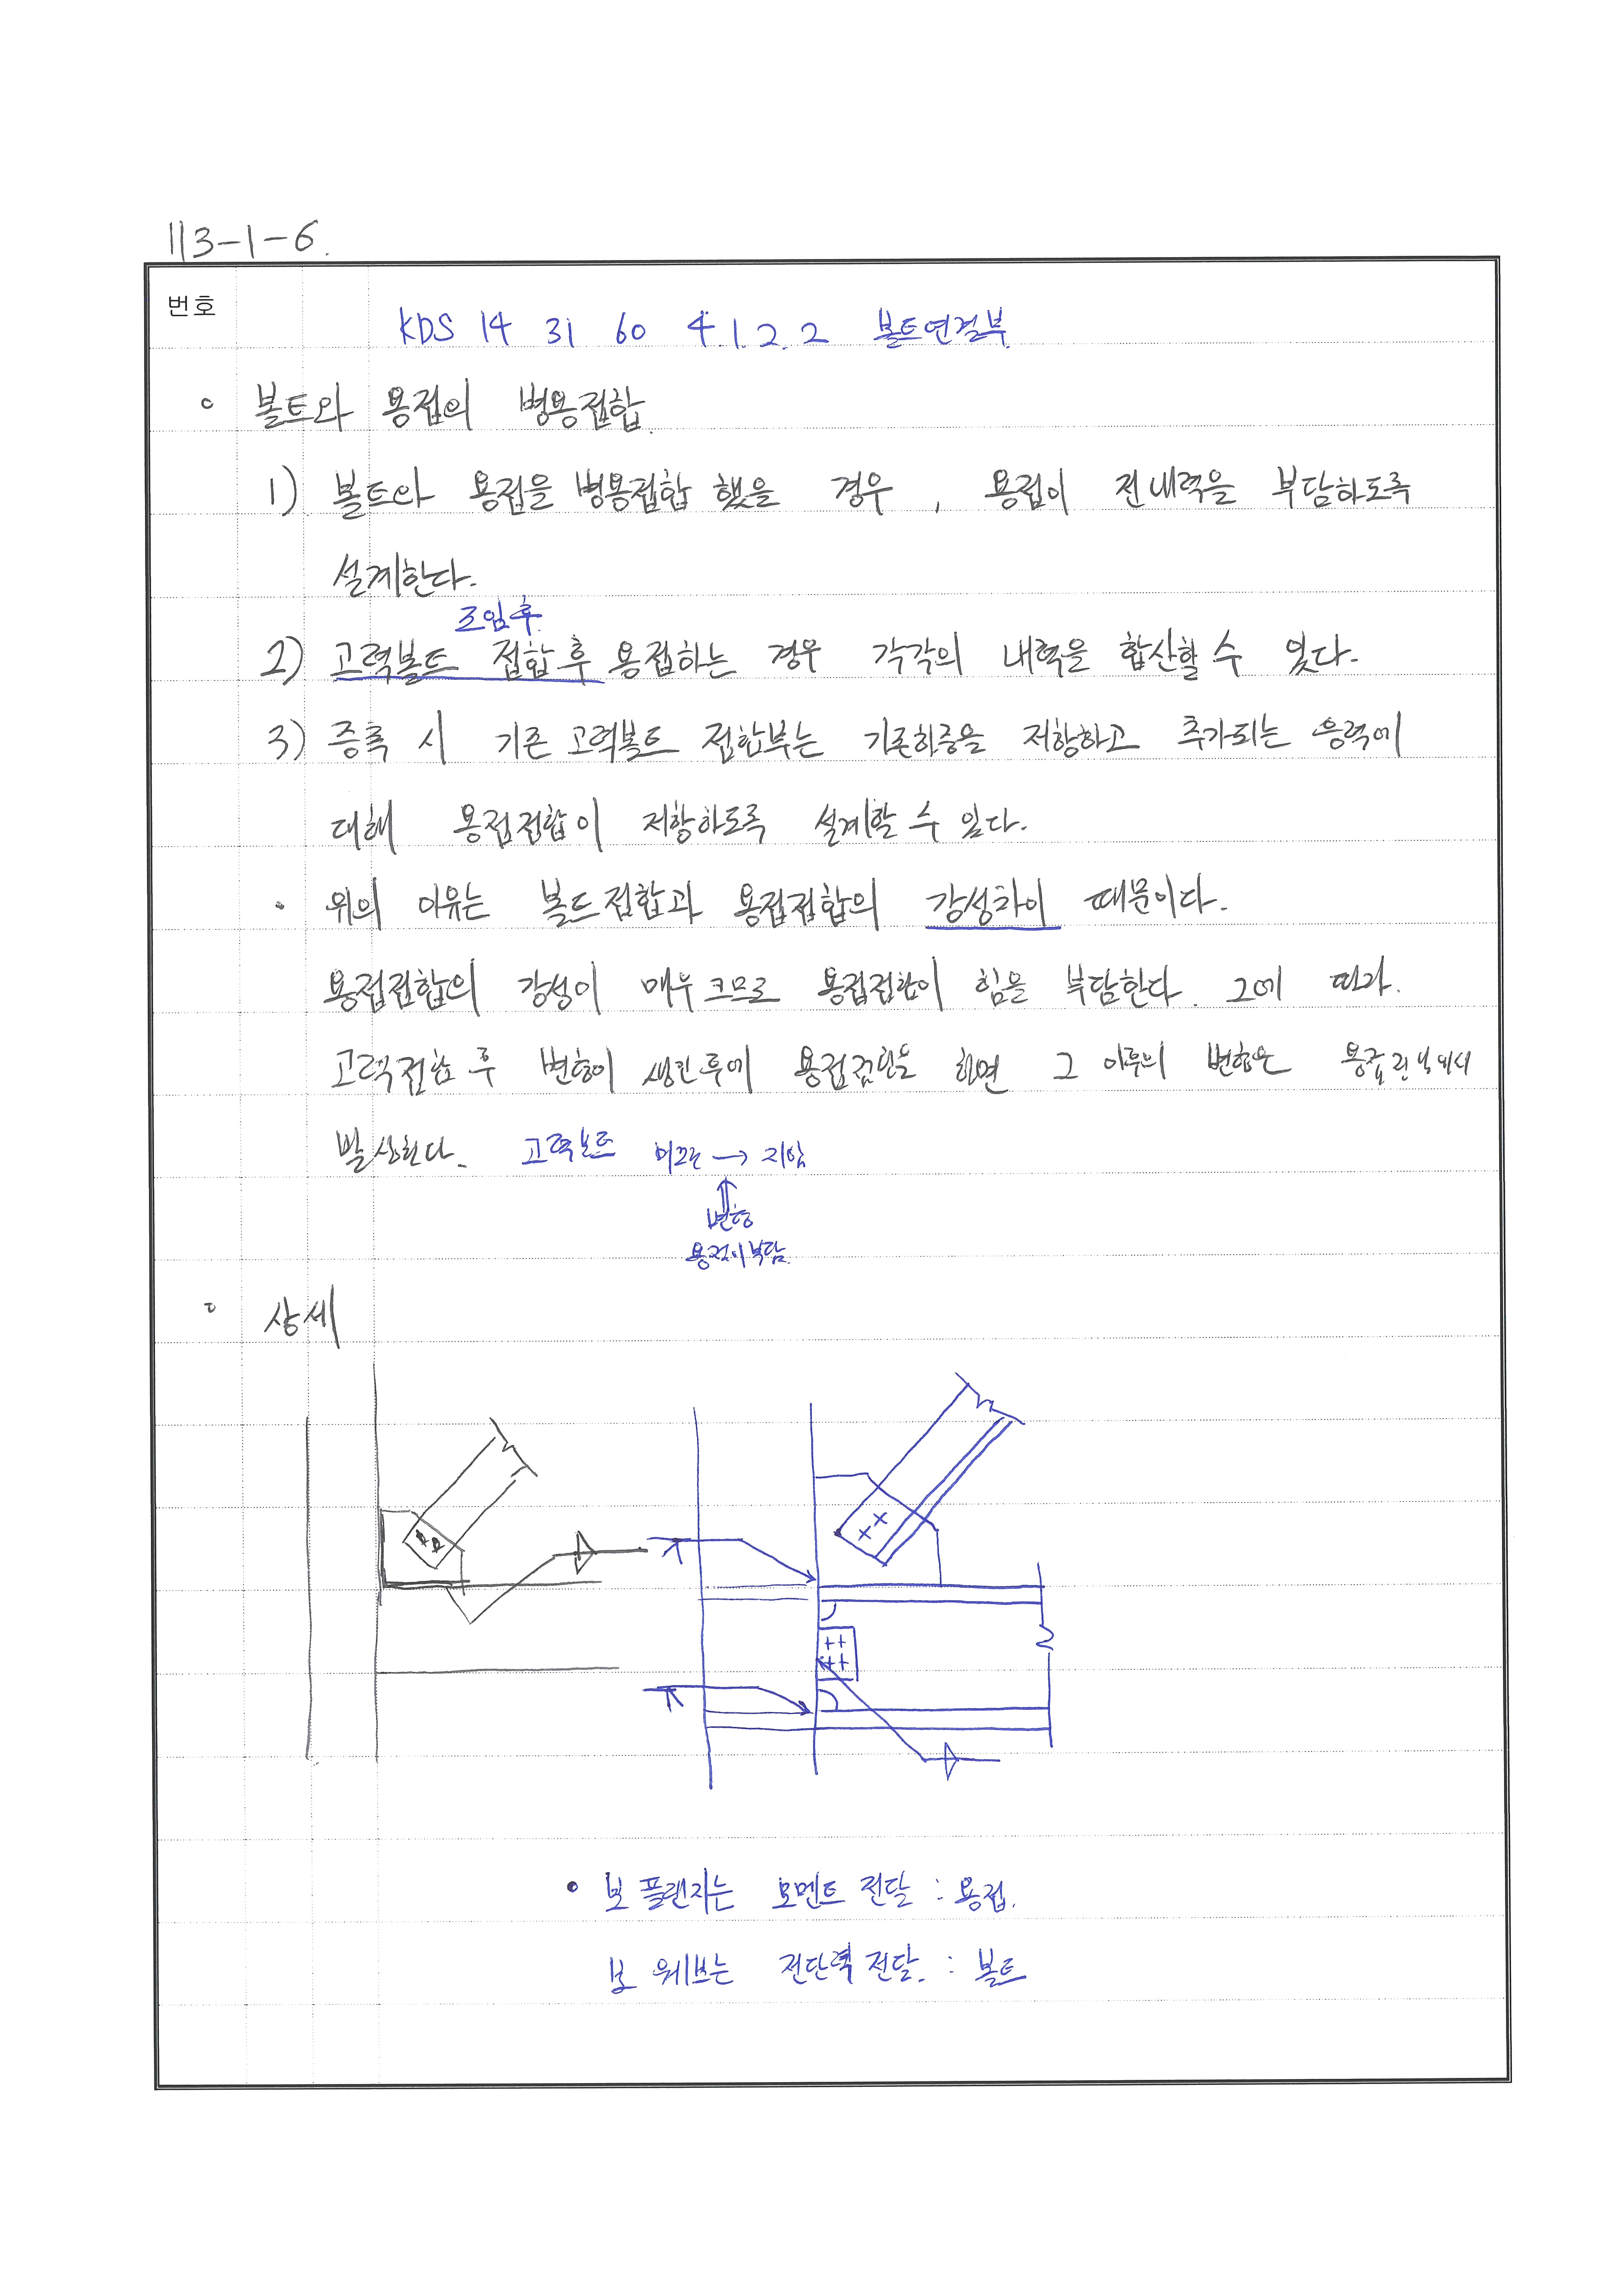 113-1-6.
번호
KDS 14 31 60 4.1.2.2 볼트연결부
볼트와 용접의 병용접합.
1) 볼트와 용접을 병용접합 했을 경우, 용접이 전내력을 부담하도록
설계한다.
조임후
2) 고력볼트 접합후 용접하는 경우 각각의 내력을 합산할 수 있다.
3) 증축 시 기존 고력볼트 접합부는 기존하중을 저항하고 추가되는 응력에
대해 용접접합이 저항하도록 설계할 수 있다.
위의 이유는 볼트접합과 용접접합의 강성차이 때문이다.
용접접합의 강성이 매우 크므로 용접접합이 힘을 부담한다. 그에 따라.
고력접합 후 변형이 생긴후에 용접접합을 하면 그 이후의 변형은
발생한다. 고력볼트 마찰 → 지압
변형
용접이 부담.
상세
보 플랜지는 모멘트 전달 : 용접.
보 웨브는 전단력 전달. : 볼트